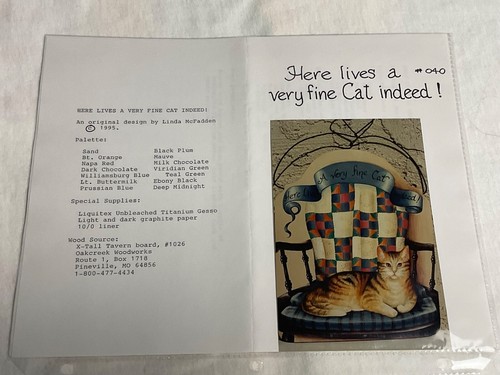 HERE LIVES A VERY FINE CAT INDEED!
An original design by Linda McFadden
© 1995.
Palette:
Sand Black Plum
Bt. Orange Mauve
Napa Red Milk Chocolate
Dark Chocolate Viridian Green
Williamsburg Blue Teal Green
Lt. Buttermilk Ebony Black
Prussian Blue Deep Midnight
Special Supplies:
Liquitex Unbleached Titanium Gesso
Light and dark graphite paper
10/0 liner
Wood Source:
X-Tall Tavern board, #1026
Oakcreek Woodworks
Route 1, Box 1718
Pineville, MO 64856
1-800-477-4434
Here lives a #040
very fine Cat indeed!
Here lives A very fine Cat indeed!